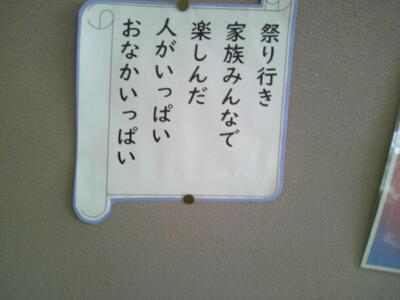 祭り行き
家族みんなで
楽しんだ
人がいっぱい
おなかいっぱい